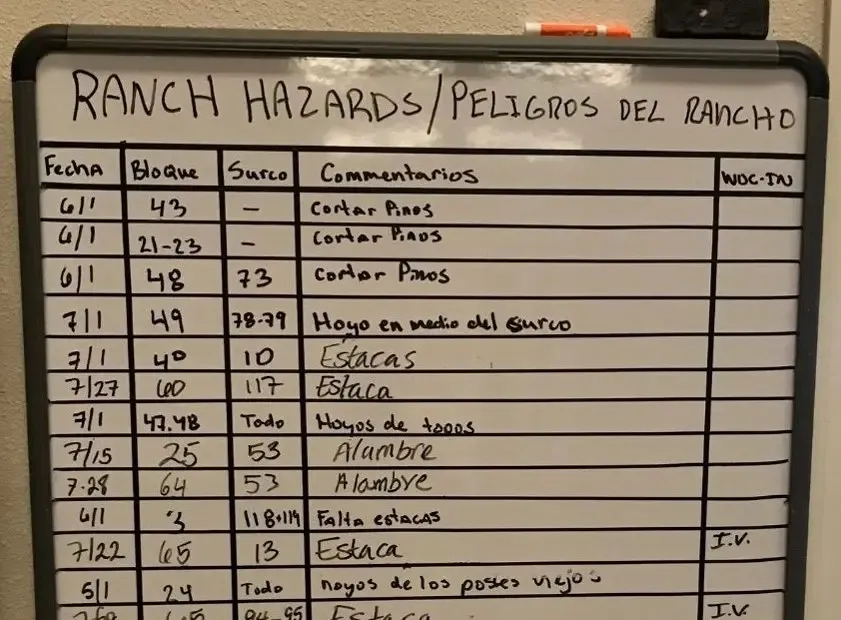 RANCH HAZARDS/PELIGROS DEL RANCHO
Fecha Bloque Surco Commentarios WOC-IN
6/1 43 — Cortar Pinos
6/1 21-23 — Cortar Pinos
6/1 48 73 Cortar Pinos
7/1 49 78-79 Hoyo en medio del surco
7/1 40 10 Estacas
7/27 60 117 Estaca
7/1 47,48 Todo Hoyos de topos
7/15 25 53 Alambre
7-28 64 53 Alambre
6/1 3 118+119 Falta estacas
7/22 65 13 Estaca I.V.
5/1 24 Todo hoyos de los postes viejos
65 94-95 Estaca I.V.